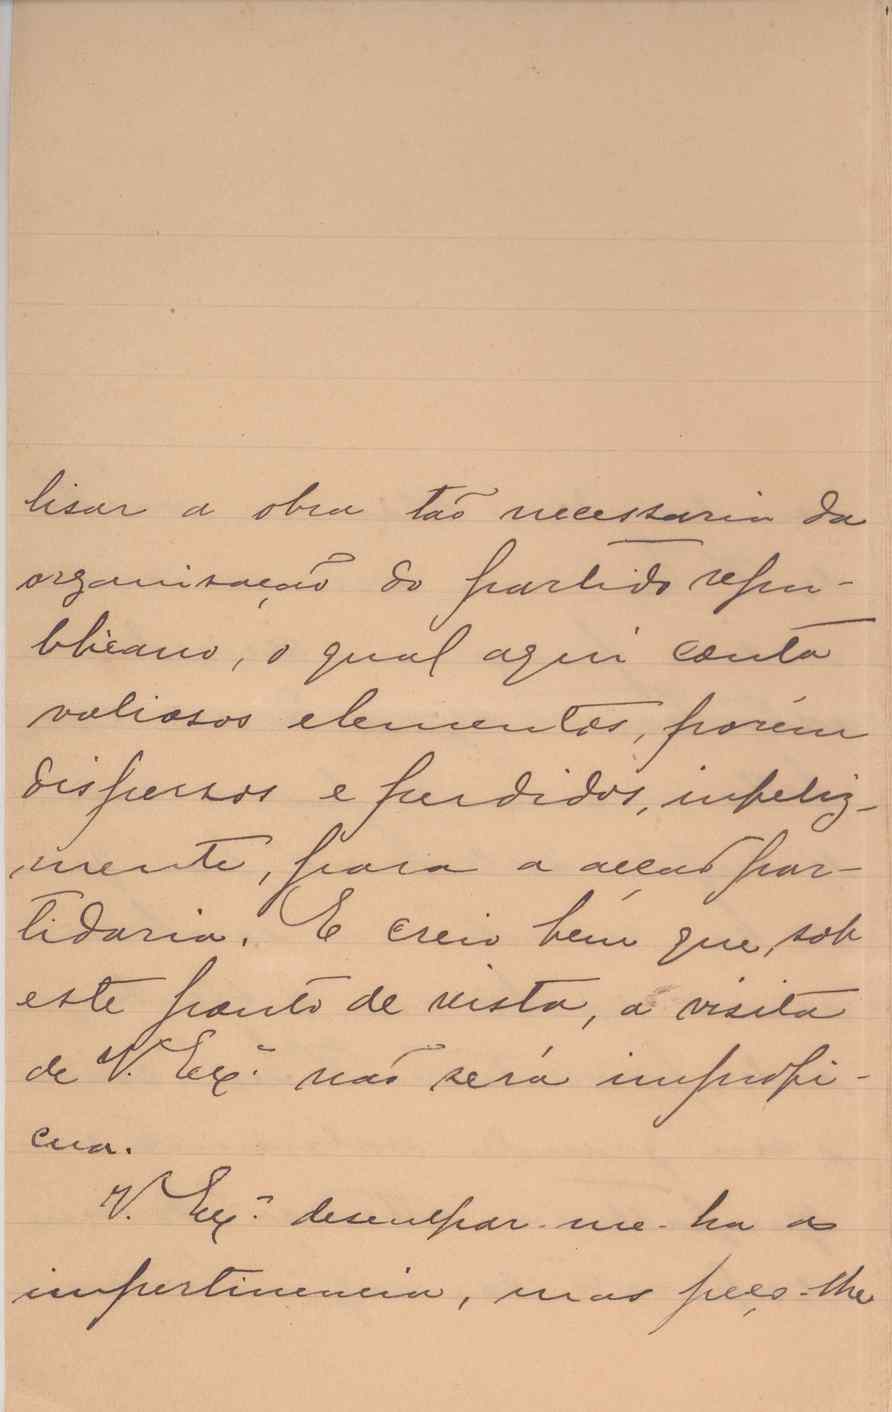 lisar a obra tão necessaria da
organisação do partido repu-
blicano, o qual aqui conta
valiosos elementos, porém
dispersos e perdidos, infeliz-
mente, para a acção par-
tidaria. E creio bem que, sob
este ponto de vista, a visita
de V. Exª. não será improfi-
cua.
V. Exª. desculpar-me-ha a
impertinencia, mas peço-lhe